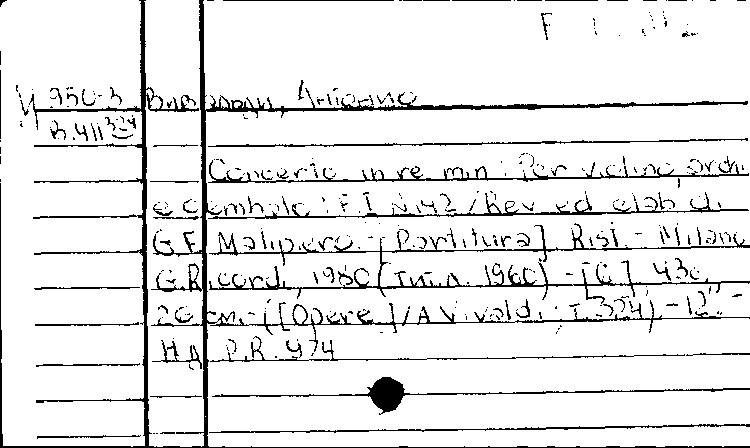 И 950-3 Вивальди, Антонио
В.411 324
Concerto in re min: Per violino, archi
e cembalo: F.I N.42 / Rev. ed elab. di
G.F. Malipiero. - [Partitura]. Rist. - Milano
G.Ricordi, 1980 (тит.л. 1960) - [6], 43 с.
26 cm. - ([Opere] / A Vivaldi; T.324). - 12".-
НД P.R. 974